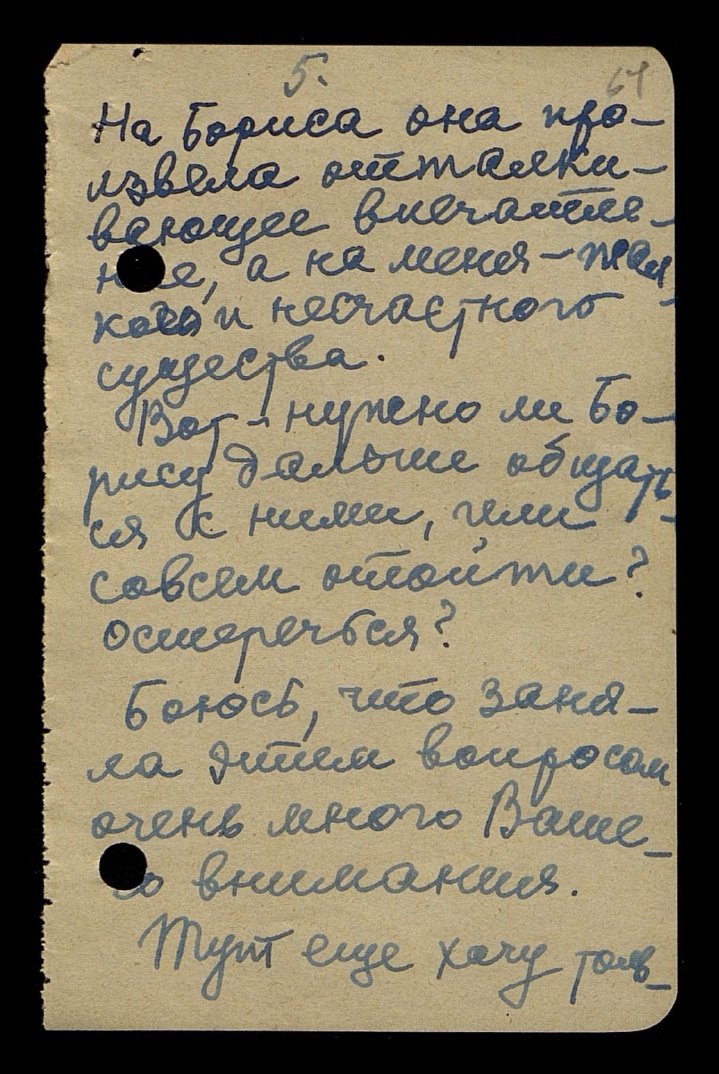 5. 64
На Бориса она про-
извела отталки-
вающее впечатле-
ние, а на меня - жал-
кого и несчастного
существа.
Вот - нужно ли Бо-
рису дальше общать-
ся с ними, или
совсем отойти?
остеречься?
Боюсь, что заня-
ла этим вопросом
очень много Ваше-
го внимания.
Тут еще хочу толь-